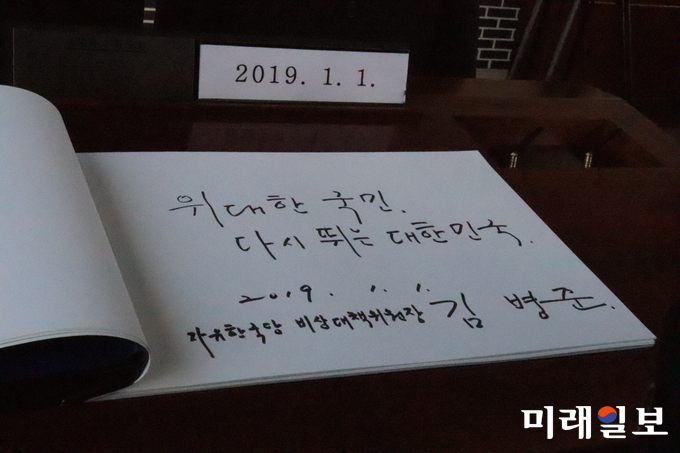 2019. 1. 1.
위대한 국민.
다시 뛰는 대한민국.
2019. 1. 1.
자유한국당 비상대책위원장 김병준.
미래일보